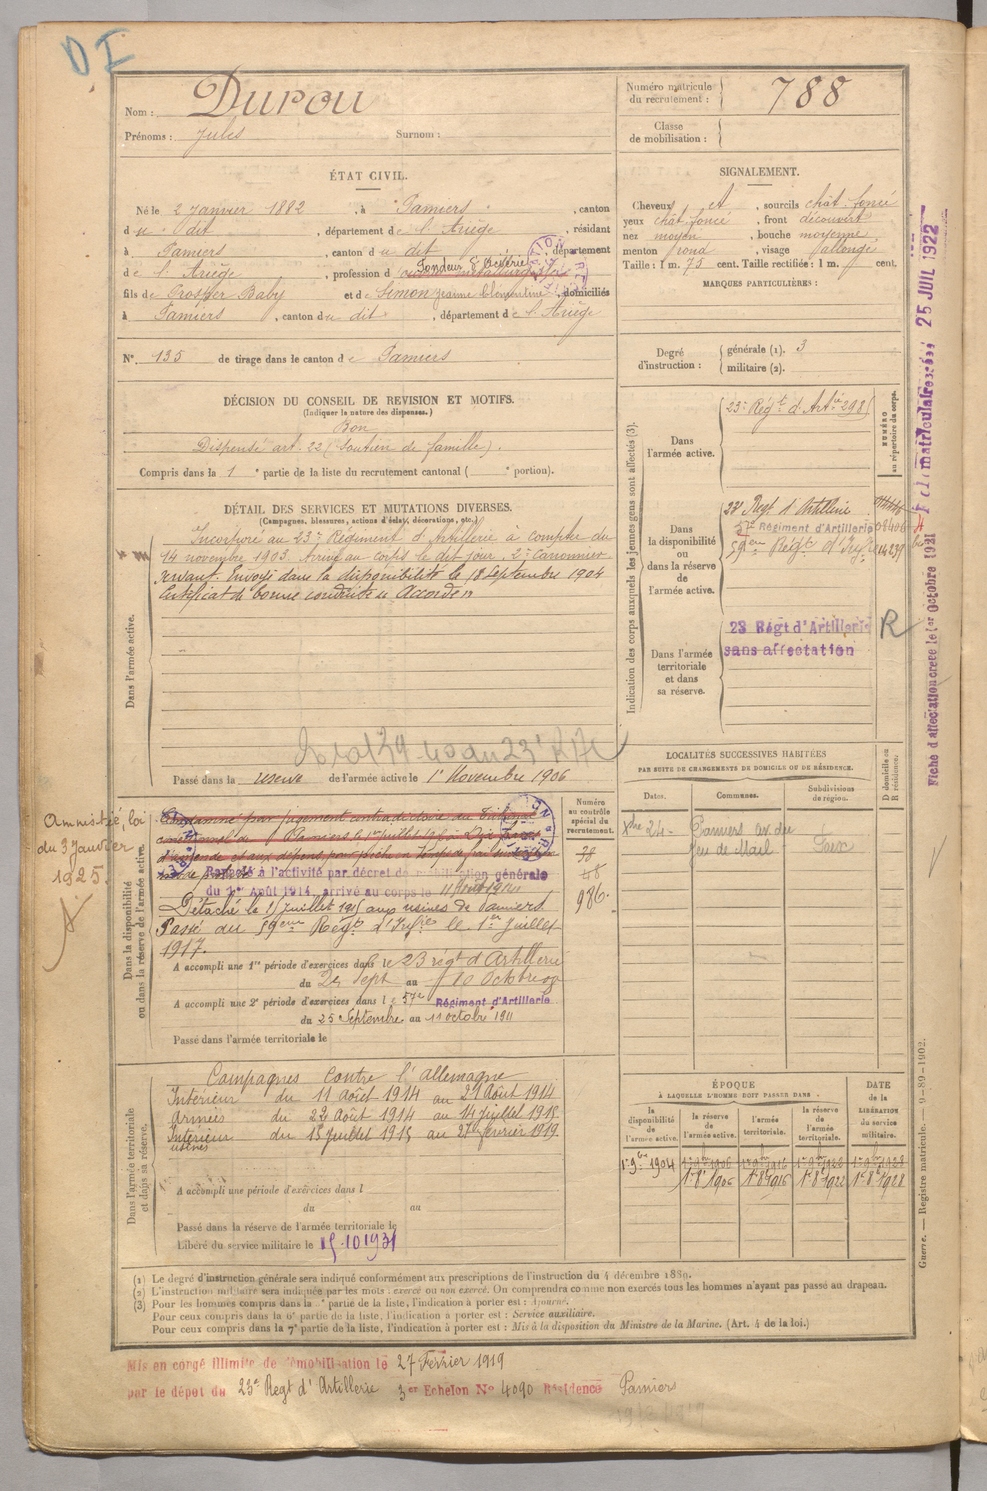 DI
Nom : Durou
Prénoms : Jules Surnom :
ÉTAT CIVIL.
Né le 2 Janvier 1882, à Pamiers, canton
du dit, département de l'Ariège, résidant
à Pamiers, canton du dit, département
de l'Ariège, profession de Fondeur d'Aciérie
fils de Prosper Baby et de Simon Jeanne Clémentine, domiciliés
à Pamiers, canton du dit, département de l'Ariège
N° 135 de tirage dans le canton de Pamiers
DÉCISION DU CONSEIL DE REVISION ET MOTIFS.
(Indiquer la nature des dispenses.)
Bon
Dispensé art. 22 (Soutien de famille).
Compris dans la 1e partie de la liste du recrutement cantonal ( e portion).
DÉTAIL DES SERVICES ET MUTATIONS DIVERSES.
(Campagnes, blessures, actions d'éclat, décorations, etc.)
Dans l'armée active.
Incorporé au 23e Régiment d'Artillerie à compter du
14 novembre 1903. Arrivé au corps le dit jour. 2e Canonnier
servant. Envoyé dans la disponibilité le 18 Septembre 1904
Certificat de bonne conduite "Accordé"
Passé dans la réserve de l'armée active le 1er Novembre 1906
Amnistié, loi
du 3 Janvier
1925.
Dans la disponibilité
ou dans la réserve de l'armée active.
Numéro
au contrôle
spécial du
recrutement.
38
48
986.
Condamné par jugement contradictoire du Tribunal
correctionnel de Pamiers le 1er juillet
d'amende et aux dépens pour pêche
Rappelé à l'activité par décret de mobilisation générale
du 1er Août 1914, arrivé au corps le 11 Août 1914
Détaché le 15 Juillet 1915 aux usines de Pamiers
Passé au 59eme Régt d'Infie le 1er Juillet
1917.
A accompli une 1re période d'exercices dans le 23 régt d'Artillerie
du 24 Sept au 10 Octobre 08
A accompli une 2e période d'exercices dans le 57e Régiment d'Artillerie
du 25 Septembre au 11 octobre 1911
Passé dans l'armée territoriale le
Dans l'armée territoriale
et dans sa réserve.
Campagnes contre l'Allemagne
Intérieur du 11 Août 1914 au 21 Août 1914
Armées du 22 Août 1914 au 14 Juillet 1915
Intérieur du 15 Juillet 1915 au 28 février 1919.
usines
A accompli une période d'exercices dans l
du au
Passé dans la réserve de l'armée territoriale le
Libéré du service militaire le 15-10 1931
Numéro matricule
du recrutement : 788
Classe
de mobilisation :
SIGNALEMENT.
Cheveux et, sourcils chât. foncé
yeux chât. foncé, front découvert
nez moyen, bouche moyenne,
menton rond, visage allongé
Taille : 1 m. 75 cent. Taille rectifiée : 1 m. cent.
MARQUES PARTICULIÈRES :
Degré
d'instruction :
générale (1). 3
militaire (2).
Indication des corps auxquels les jeunes gens sont affectés (3).
NUMÉRO
au répertoire du corps.
Dans
l'armée active.
23e Régt d'Artie 2981
Dans
la disponibilité
ou
dans la réserve
de
l'armée active.
23e Regt d'Artillerie
57e Régiment d'Artillerie
59eme Régt d'Infie
Dans l'armée
territoriale
et dans
sa réserve.
23 Régt d'Artillerie
sans affectation
R
LOCALITÉS SUCCESSIVES HABITÉES
PAR SUITE DE CHANGEMENTS DE DOMICILE OU DE RÉSIDENCE.
Dates.
Communes.
Subdivisions
de région.
D domicile ou
R résidence.
Xbre 24 - Pamiers av. du Foix
Jeu de Mail
ÉPOQUE
À LAQUELLE L'HOMME DOIT PASSER DANS -
la
disponibilité
de
l'armée active.
la réserve
de
l'armée active.
l'armée
territoriale.
la réserve
de
l'armée
territoriale.
DATE
de la
LIBÉRATION
du service
militaire.
1er 9bre 1904 1er 9bre 1906 1er 9bre 1916 1er 9bre 1928
1er 8bre 1906 1er 8bre 1916 1er 8bre 1922 1er 8bre 1928
Fiche matriculaire 25 JUIL 1922
Fiche d'affectation créée le 1er Octobre 1921
Guerre. — Registre matricule. — 9-89-1902.
(1) Le degré d'instruction générale sera indiqué conformément aux prescriptions de l'instruction du 4 décembre 1889.
(2) L'instruction militaire sera indiquée par les mots : exercé ou non exercé. On comprendra comme non exercés tous les hommes n'ayant pas passé au drapeau.
(3) Pour les hommes compris dans la e partie de la liste, l'indication à porter est : Ajourné.
Pour ceux compris dans la 6e partie de la liste, l'indication à porter est : Service auxiliaire.
Pour ceux compris dans la 7e partie de la liste, l'indication à porter est : Mis à la disposition du Ministre de la Marine. (Art. 4 de la loi.)
Mis en congé illimité de démobilisation le 27 Février 1919
par le dépôt du 23e Regt d'Artillerie 3er Echelon No 4090 Résidence Pamiers